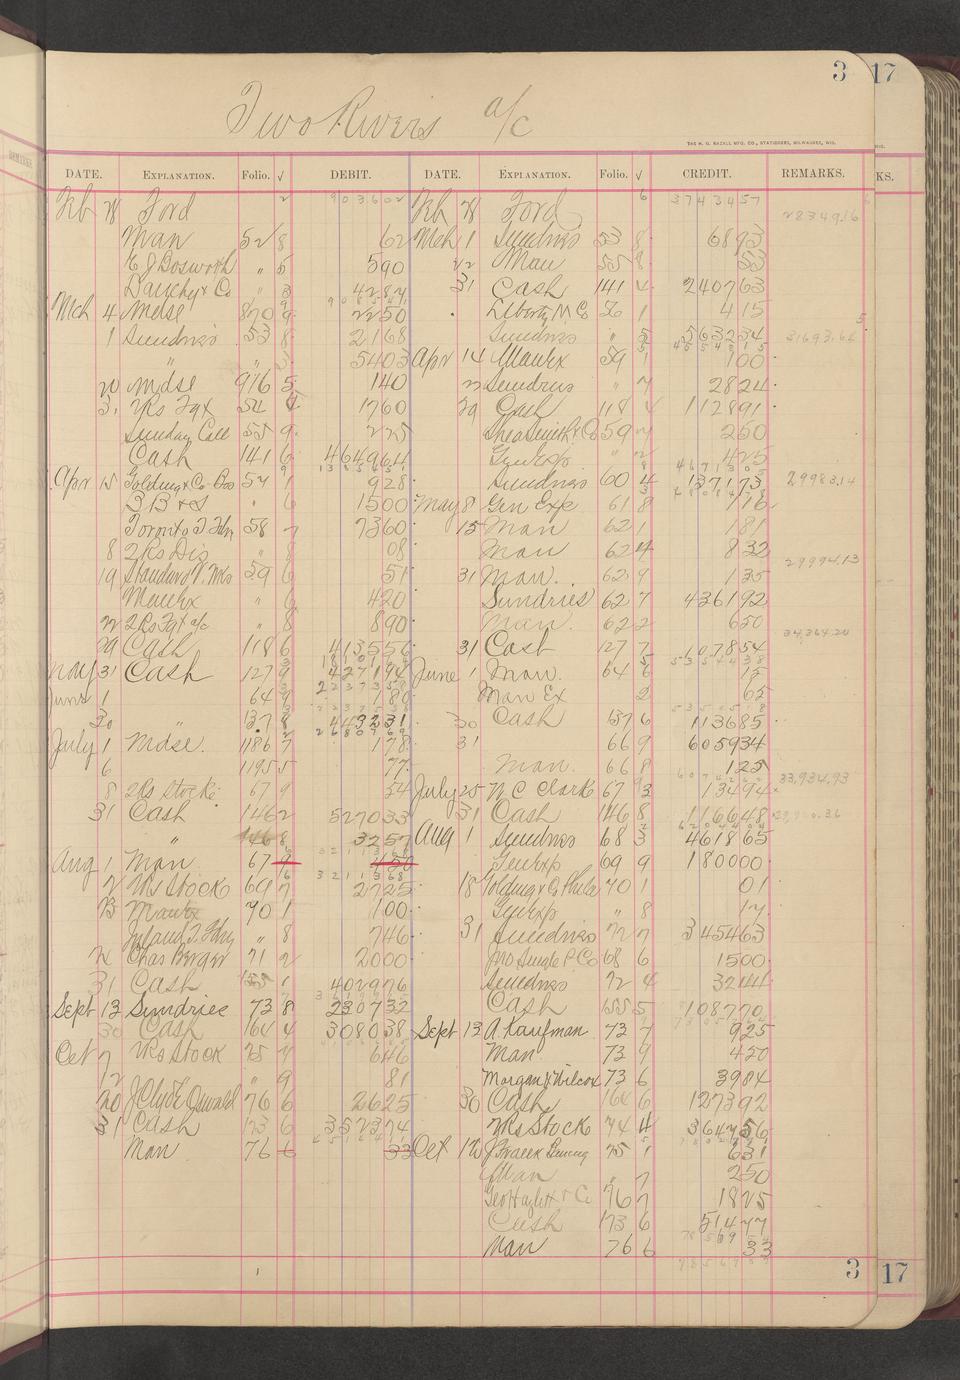 3
17
Two Rivers a/c
THE H. G. RAZALL MFG. CO., STATIONERS, MILWAUKEE, WIS.
DATE. EXPLANATION. Folio. √ DEBIT. DATE. EXPLANATION. Folio. √ CREDIT. REMARKS.
KS.
Feb 28 Ford 2 903602 Feb 28 Ford 6 3743457
2834916
Man 52 8 62 Mch 1 Sundries 53 8 6893
E J Bosworth " 5 590 22 Man 55 8 53
Dauchy & Co " 3 4284 31 Cash 141 4 240763
Mch 4 Mdse 870 9 2250 Liberty M Co 56 1 415
1 Sundries 53 8 2168 Sundries " 5 563234
31693.62
" " 3 5403 Apr 14 Man Ex 59 1 100
20 Mdse 916 5 140 Sundries " 7 2824
31 2Rs Fgt 54 4 1760 29 Cash 118 4 112891
Sunday Call 55 9 225 Shea Smith & Co 59 7 250
Cash 141 6 464964 Gen Exp " 2 425
Apr 15 Golding & Co Bos 57 1 928 Sundries 60 4 137173
29983.14
B B & S " 6 1500 May 8 Gen Exp 61 8 116
Toronto T Fdry 58 7 7360 15 Man 62 1 181
8 2Rs Dis " 8 08 Man 62 4 832
29994.13
19 Standard V. Wks 59 6 51 31 Man. 62 9 135
Man Ex " 6 420 Sundries 62 7 436192
22 2Rs Fgt a/c " 8 890 Man. 62 2 650
34,364.20
29 Cash 118 6 413556 31 Cash 127 7 107854
May 31 Cash 127 9 427194 June 1 Man. 64 6 15
June 1 64 9 80 Man Ex 2 65
30 " 137 8 443231 30 Cash 137 6 113685
July 1 Mdse. 1186 7 178 31 66 9 605934
6 1195 5 77 Man. 66 8 125
8 2Rs Stock 67 9 54 July 25 N C Clark 67 3 13494
33,934.93
31 Cash 146 2 527033 31 Cash 146 8 116648
" 146 8 3257 Aug 1 Sundries 68 3 461865
Aug 1 Man. 67 9 450 Gen Exp 69 9 180000
2 2Rs Stock 69 7 2725 18 Golding & Co Phila 70 1 01
13 Man Ex 70 1 100 Gen Exp " 8 17
Inland T. Fdry " 8 746 31 Sundries 72 7 345463
24 Chas Berger 71 2 2000 Jno Single P Co 68 6 1500
31 Cash 155 1 402976 Sundries 72 4 3244
Sept 13 Sundries 73 8 230732 Cash 155 5 108770
30 Cash 164 4 308038 Sept 13 A. Kaufman 73 7 925
Oct 7 2Rs Stock 75 7 646 Man 73 9 450
12 " 9 81 Morgan & Wilcox 73 6 3984
20 J Clyde Oswald 76 6 2625 30 Cash 164 6 127392
31 Cash 173 6 352374 2Rs Stock 74 4 364756
Man 76 6 33 Oct 12 75 1 631
Man " 7 250
76 7 1825
Cash 173 6 51477
Man 76 6 33
3
17